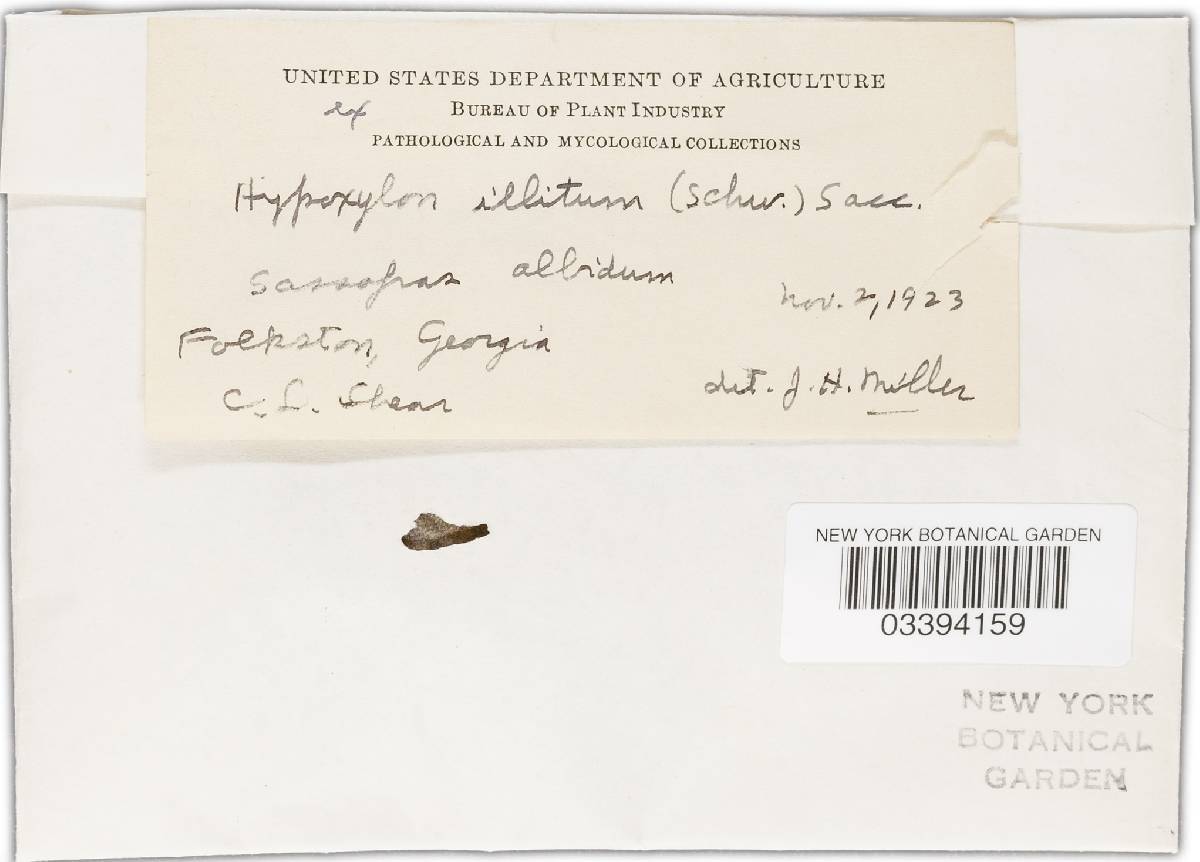 UNITED STATES DEPARTMENT OF AGRICULTURE
ex BUREAU OF PLANT INDUSTRY
PATHOLOGICAL AND MYCOLOGICAL COLLECTIONS
Hypoxylon illitum (Schw.) Sacc.
Sassafras albidum
Nov. 2, 1923
Folkston, Georgia
C. L. Shear
det. J. H. Miller
NEW YORK BOTANICAL GARDEN
03394159
NEW YORK
BOTANICAL
GARDEN